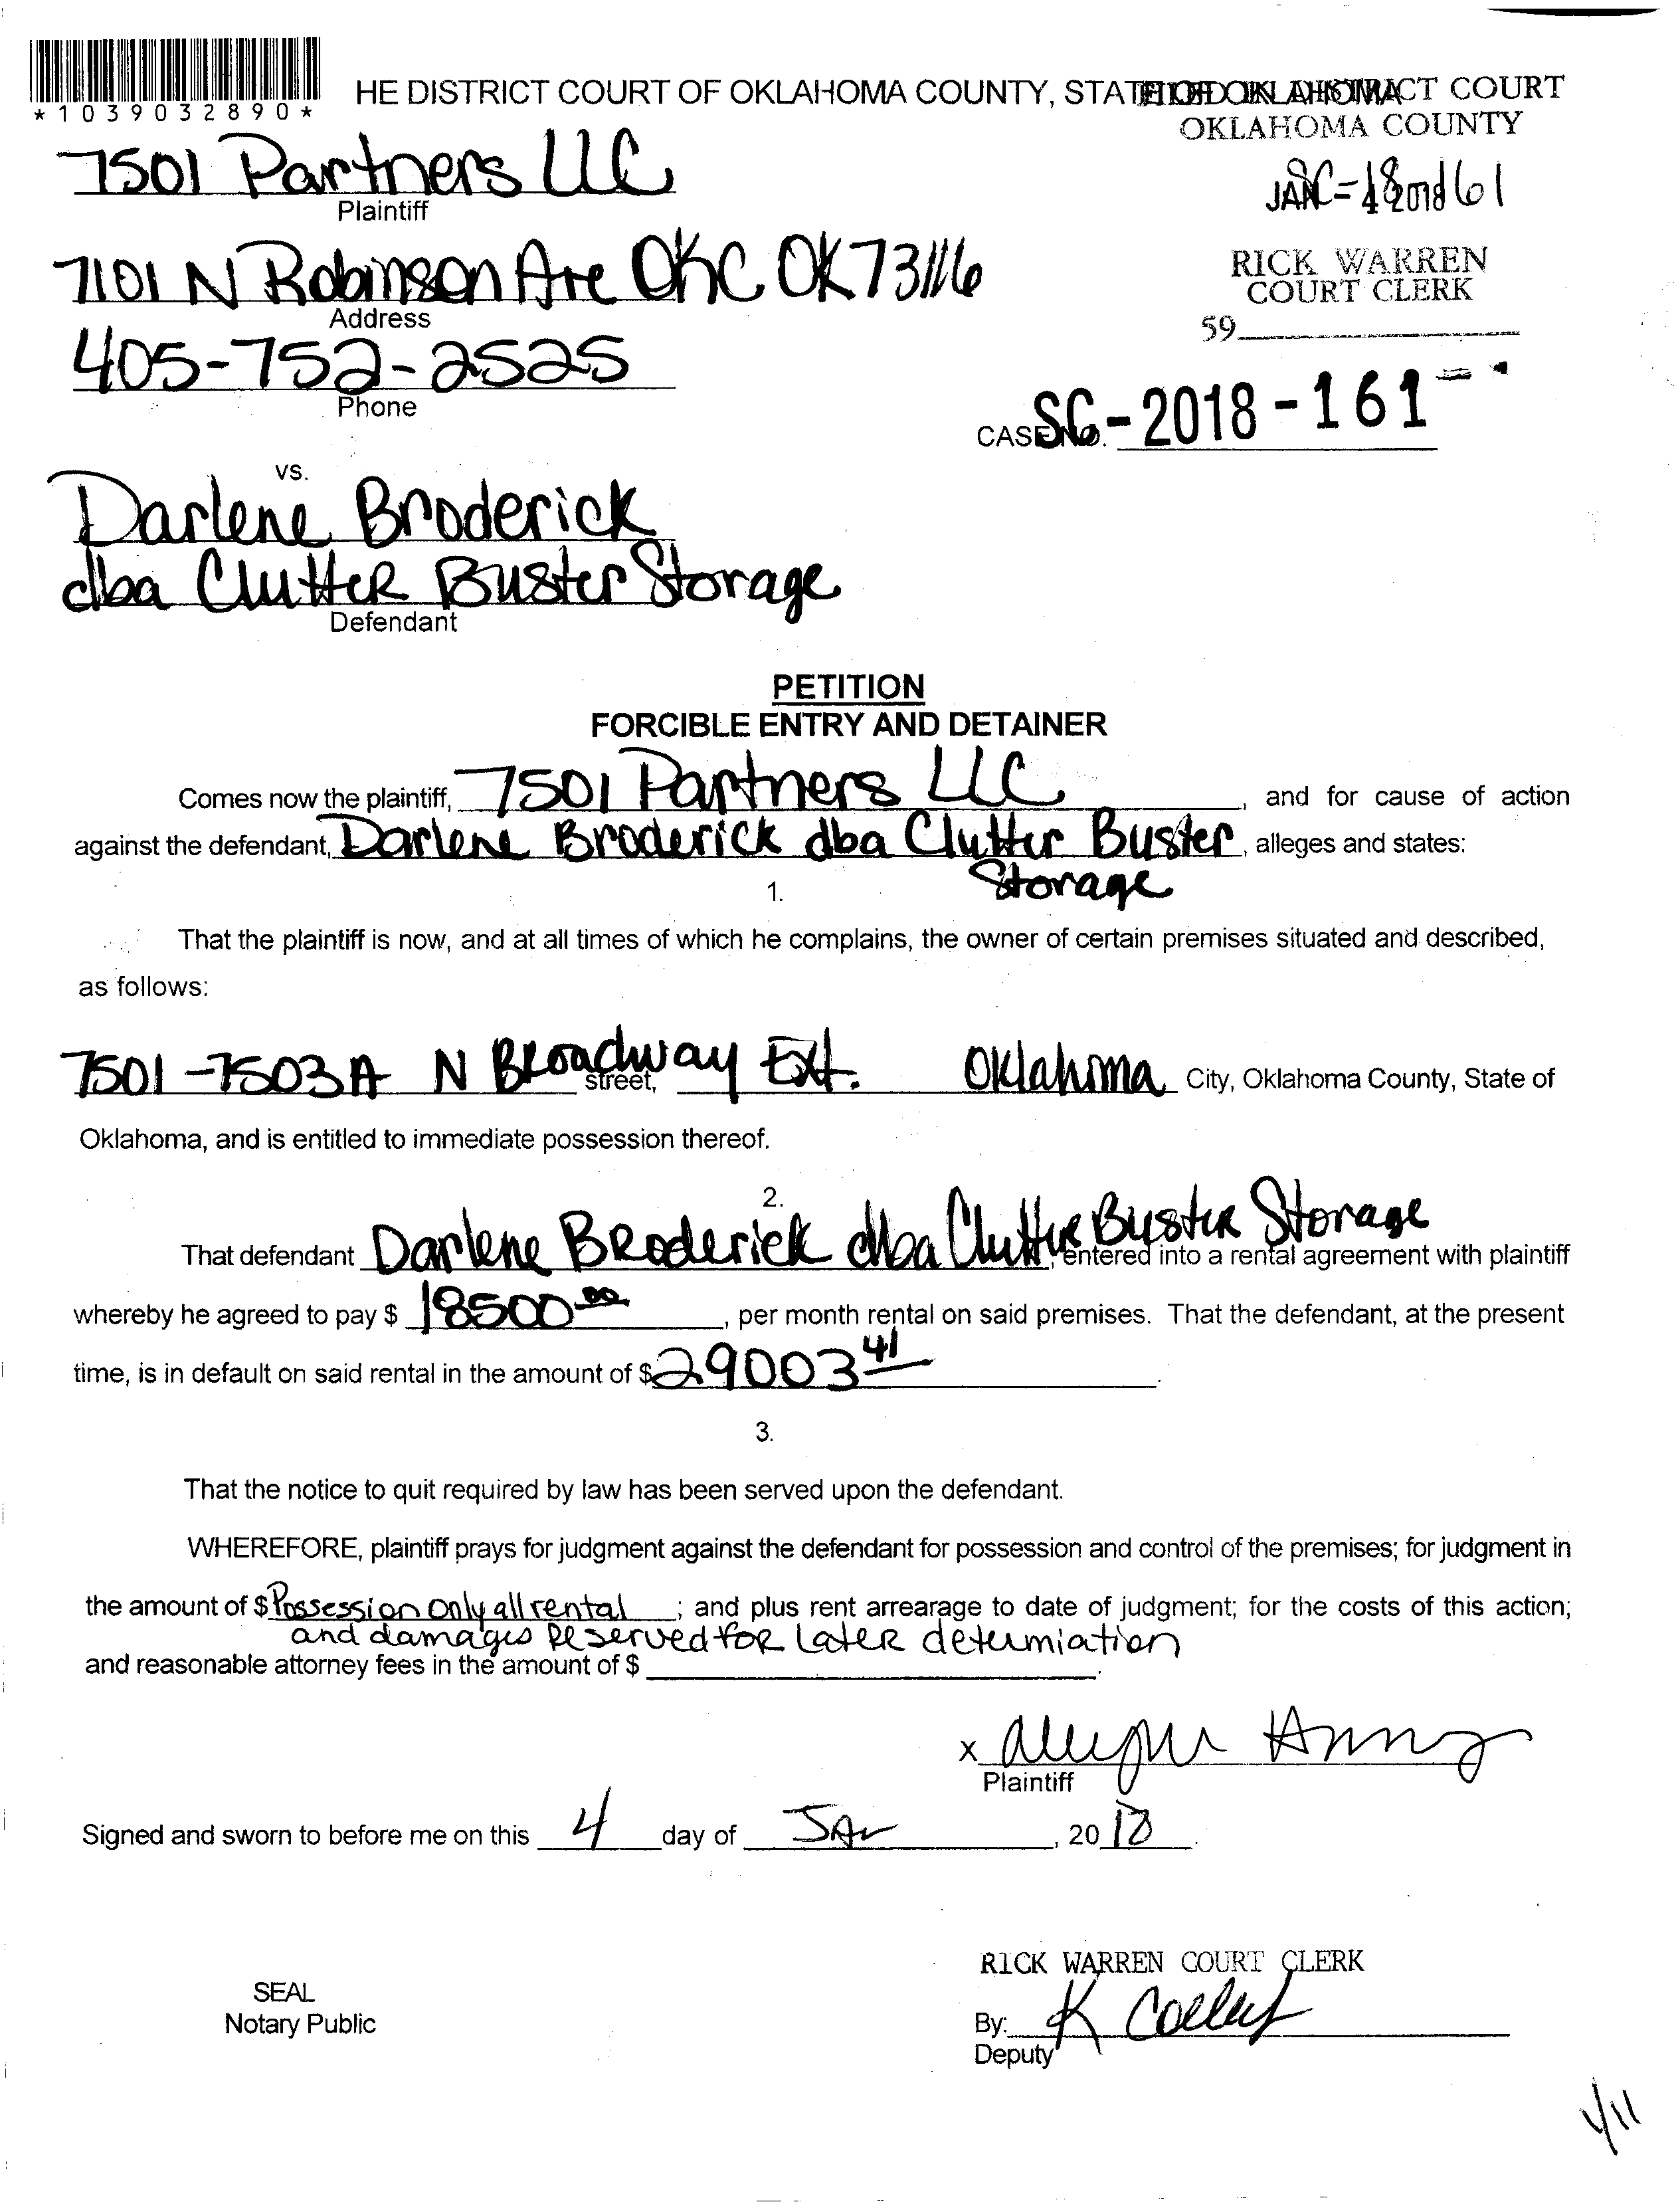 *1039032890*
HE DISTRICT COURT OF OKLAHOMA COUNTY, STATE OF OKLAHOMA
DISTRICT COURT
OKLAHOMA COUNTY
7501 Partners LLC
Plaintiff
JAN - 4 2018
SC-18-161
7101 N Robinson Ave OKC OK 73116
Address
RICK WARREN
COURT CLERK
59
405-752-2525
Phone
CASE NO. SC-2018-161
vs.
Darlene Broderick
dba Clutter Buster Storage
Defendant
PETITION
FORCIBLE ENTRY AND DETAINER
Comes now the plaintiff, 7501 Partners LLC, and for cause of action
against the defendant, Darlene Broderick dba Clutter Buster, alleges and states:
Storage
1.
That the plaintiff is now, and at all times of which he complains, the owner of certain premises situated and described,
as follows:
7501-7503A N Broadway Ext. street, Oklahoma City, Oklahoma County, State of
Oklahoma, and is entitled to immediate possession thereof.
2.
That defendant Darlene Broderick dba Clutter Buster Storage, entered into a rental agreement with plaintiff
whereby he agreed to pay $ 18500.00, per month rental on said premises. That the defendant, at the present
time, is in default on said rental in the amount of $ 29003 41.
3.
That the notice to quit required by law has been served upon the defendant.
WHEREFORE, plaintiff prays for judgment against the defendant for possession and control of the premises; for judgment in
the amount of $ Possession only all rental; and plus rent arrearage to date of judgment; for the costs of this action;
and damages reserved for later determiation
and reasonable attorney fees in the amount of $
x
Plaintiff
Signed and sworn to before me on this 4 day of Jan, 2018.
RICK WARREN COURT CLERK
SEAL
Notary Public
By: K
Deputy
1/11